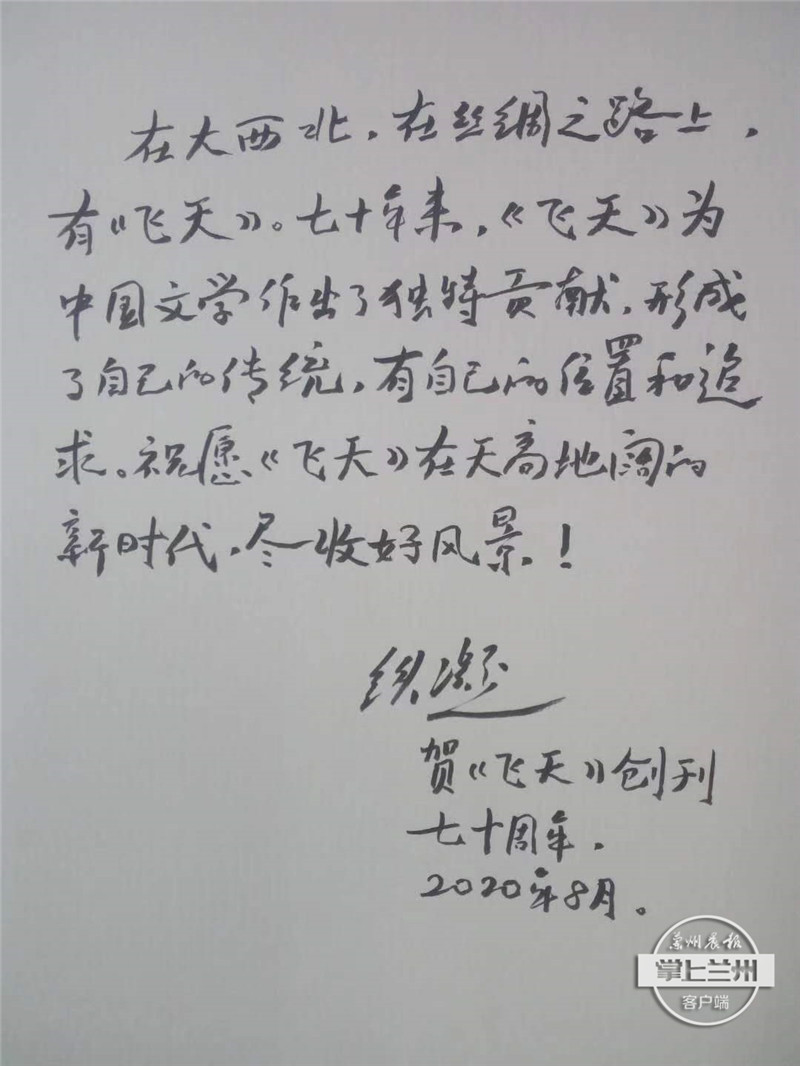 在大西北，在丝绸之路上，
有《飞天》。七十年来，《飞天》为
中国文学作出了独特贡献，形成
了自己的传统，有自己的位置和追
求。祝愿《飞天》在天高地阔的
新时代，尽收好风景！
铁凝
贺《飞天》创刊
七十周年，
2020年8月。
兰州晨报
掌上兰州
客户端